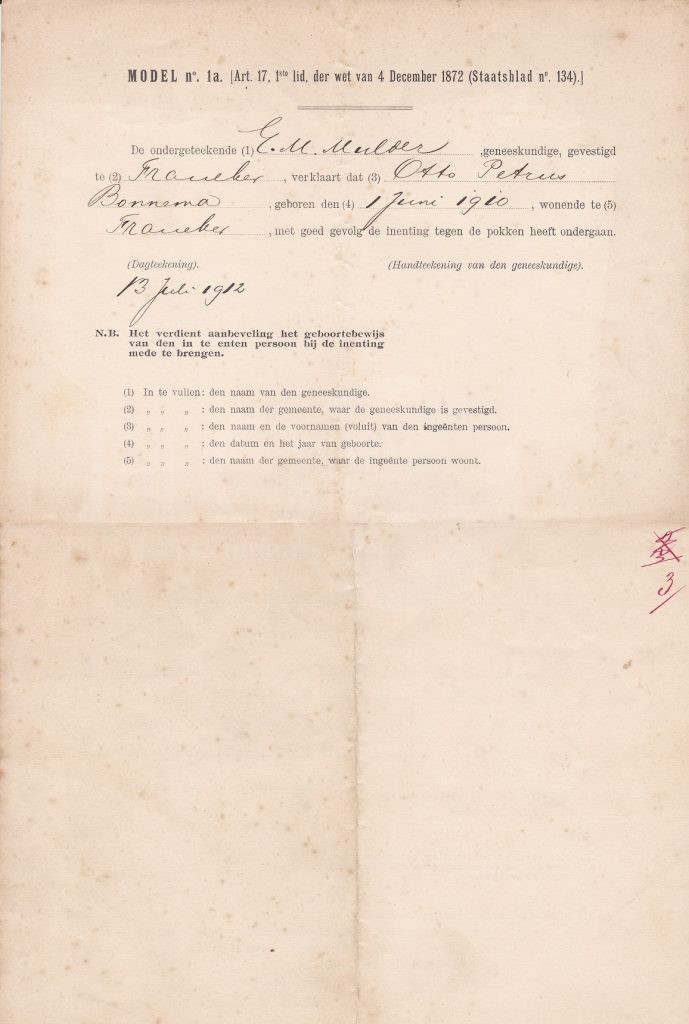 MODEL nº. 1a. [Art. 17, 1ste lid, der wet van 4 December 1872 (Staatsblad nº. 134).]
De ondergeteekende (1) E. M. Mulder ,geneeskundige, gevestigd
te (2) Franeker , verklaart dat (3) Otto Petrus
Bonnema , geboren den (4) 1 Juni 1910 , wonende te (5)
Franeker , met goed gevolg de inenting tegen de pokken heeft ondergaan.
(Dagteekening). (Handteekening van den geneeskundige).
13 Juli 1912
N.B. Het verdient aanbeveling het geboortebewijs
van den in te enten persoon bij de inenting
mede te brengen.
(1) In te vullen: den naam van den geneeskundige.
(2) „ „ „ : den naam der gemeente, waar de geneeskundige is gevestigd.
(3) „ „ „ : den naam en de voornamen (voluit) van den ingeënten persoon.
(4) „ „ „ : den datum en het jaar van geboorte.
(5) „ „ „ : den naam der gemeente, waar de ingeënte persoon woont.
3